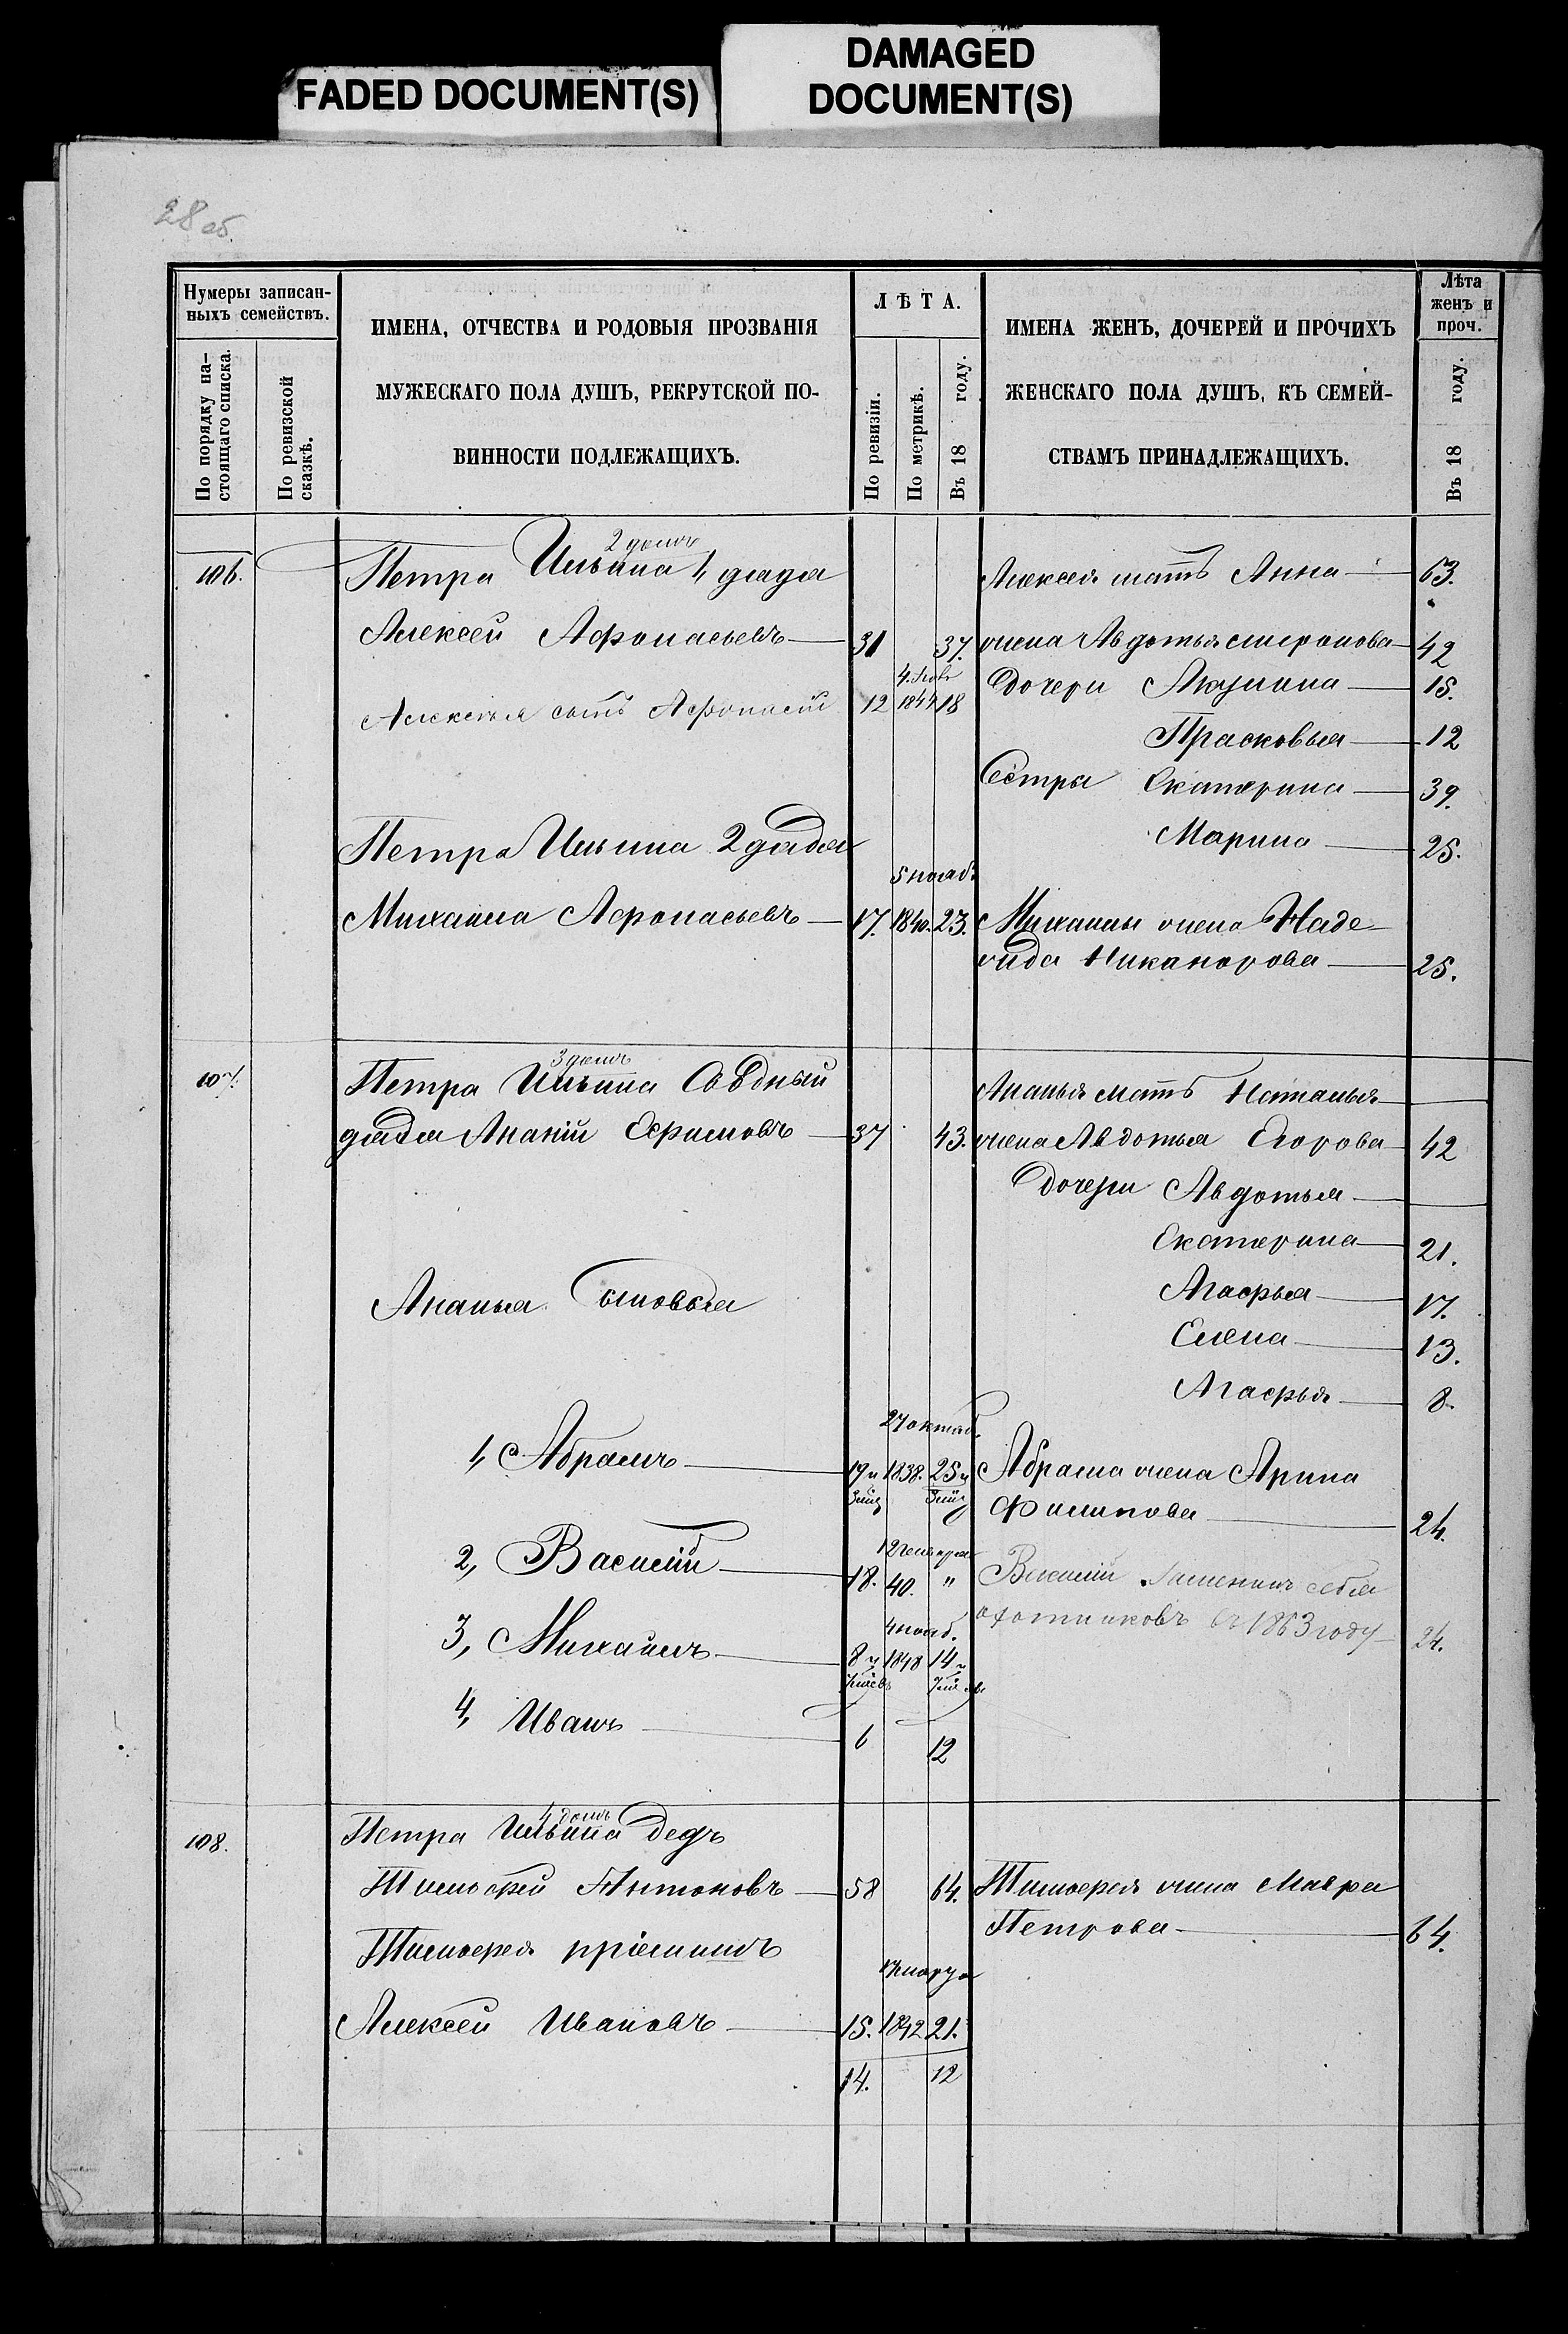 FADED DOCUMENT(S)
DAMAGED
DOCUMENT(S)
28 об.
Нумеры записан-
ныхъ семействъ.
По порядку на-
стоящаго списка.
По ревизской
сказкѣ.
ИМЕНА, ОТЧЕСТВА И РОДОВЫЯ ПРОЗВАНІЯ
МУЖЕСКАГО ПОЛА ДУШЪ, РЕКРУТСКОЙ ПО-
ВИННОСТИ ПОДЛЕЖАЩИХЪ.
ЛѢТА.
По ревизіи.
По метрикѣ.
Въ 18 году.
ИМЕНА ЖЕНЪ, ДОЧЕРЕЙ И ПРОЧИХЪ
ЖЕНСКАГО ПОЛА ДУШЪ, КЪ СЕМЕЙ-
СТВАМЪ ПРИНАДЛЕЖАЩИХЪ.
Лѣта
женъ и
проч.
Въ 18 году.
2 домъ
106. Петра Ильина 1, дядя
Алексей Афонасьевъ 31 37.
Алексея сынъ Афонасій 12 1844 18
Петра Ильина 2 дядя
5 нояб.
Михаила Афонасьевъ 17. 1840. 23.
Алексея мать Анна 63.
жена Авдотья 42
Дочери Акулина 15.
Прасковья 12
Сестра Екатерина 39.
Марина 25.
Михаилы жена Наде-
жда Никанорова 25.
3 домъ
107. Петра Ильина
дядя Ананій Ефимовъ 37 43.
Ананья Сыновья
27 октяб.
1, Абрамъ 19 и 1838. 25 и
2, Василій 18. 40. "
4 нояб.
3, Михаилъ 8 1848 14
4, Иванъ 6 12
Ананья мать Наталья
жена Авдотья Егорова 42
Дочери Авдотья
Екатерина 21.
Агафья 17.
Елена 13.
Агафья 8.
Абрама жена Арина
Филипова 24.
Василій заменилъ себя
охотникомъ въ 1863 году 24.
4 домъ
108. Петра Ильина Дедъ
Тимофей Антоновъ 58 64.
Тимофея пріемышъ
Алексей Ивановъ 15. 1842 21.
14. 12
Тимофея жена Мавра
Петрова 64.